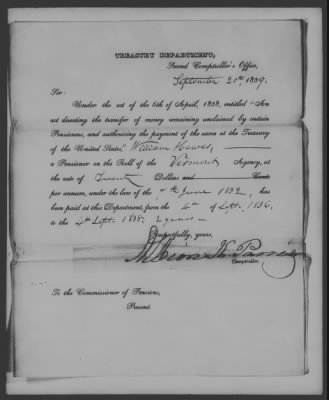 TREASURY DEPARTMENT,
Second Comptroller's Office,
September 20th, 1839.
Sir:
Under the act of the 6th of April, 1838, entitled "An
act directing the transfer of money remaining unclaimed by certain
Pensioners, and authorizing the payment of the same at the Treasury
of the United States," William Hewes,
a Pensioner on the Roll of the Vermont Agency, at
the rate of Twenty Dollars and Cents
per annum, under the law of the 7th June 1832, has
been paid at this Department, from the 4th of Sept. 1836,
to the 4th Sept. 1838. 2 years
Respectfully, yours,
Albion K. Parris
Comptroller.
To the Commissioner of Pensions,
Present.